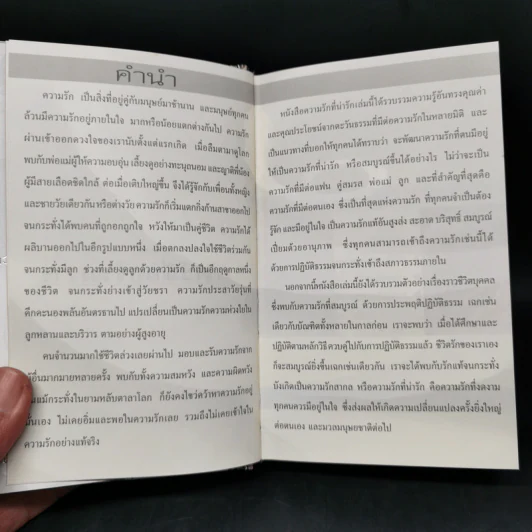 คำนำ
ความรัก เป็นสิ่งที่อยู่คู่กับมนุษย์มาช้านาน และมนุษย์ทุกคน
ล้วนมีความรักอยู่ภายในใจ มากหรือน้อยแตกต่างกันไป ความรัก
ผ่านเข้าออกดวงใจของเรานับตั้งแต่แรกเกิด เมื่อลืมตามาดูโลก
พบกับพ่อแม่ผู้ให้ความอบอุ่น เลี้ยงดูอย่างทะนุถนอม และญาติพี่น้อง
ผู้มีสายเลือดชิดใกล้ ต่อเมื่อเติบใหญ่ขึ้น จึงได้รู้จักกับเพื่อนทั้งหญิง
และชายวัยเดียวกัน หรือต่างวัย ความรักก็เริ่มแตกกิ่งก้านสาขาออกไป
จนกระทั่งได้พบคนที่ถูกอกถูกใจ หวังให้มาเป็นคู่ชีวิต ความรักได้
ผลิบานออกไปในอีกรูปแบบหนึ่ง เมื่อตกลงปลงใจใช้ชีวิตร่วมกัน
จนกระทั่งมีลูก ช่วงที่เลี้ยงดูลูกด้วยความรัก ก็เป็นอีกฤดูกาลหนึ่ง
ของชีวิต จนกระทั่งย่างเข้าสู่วัยชรา ความรักประสาวัยรุ่นที่
คึกคะนองพลันอันตรธานไป แปรเปลี่ยนเป็นความรักความห่วงใยใน
ลูกหลานและบริวาร ตามอย่างผู้สูงอายุ
คนจำนวนมากใช้ชีวิตล่วงเลยผ่านไป มอบและรับความรักจาก
ผู้อื่นมากมายหลายครั้ง พบกับทั้งความสมหวัง และความผิดหวัง
แม้กระทั่งในยามหลับตาลาโลก ก็ยังคงไขว่คว้าหาความรักอยู่
นั่นเอง ไม่เคยอิ่มและพอในความรักเลย รวมถึงไม่เคยเข้าใจใน
ความรักอย่างแท้จริง
หนังสือความรักที่น่ารักเล่มนี้ได้รวบรวมความรู้อันทรงคุณค่า
และคุณประโยชน์จากตะวันธรรมที่มีต่อความรักในหลายมิติ และ
เป็นแนวทางที่บอกให้ทุกคนได้ทราบว่า จะพัฒนาความรักที่ตนมีอยู่
ให้เป็นความรักที่น่ารัก หรือสมบูรณ์ขึ้นได้อย่างไร ไม่ว่าจะเป็น
ความรักที่มีต่อแฟน คู่สมรส พ่อแม่ ลูก และที่สำคัญที่สุดคือ
ความรักที่มีต่อตนเอง ซึ่งเป็นที่สุดแห่งความรัก ที่ทุกคนจำเป็นต้อง
รู้จัก และมีอยู่ในใจ เป็นความรักแท้อันสูงส่ง สะอาด บริสุทธิ์ สมบูรณ์
เปี่ยมด้วยอานุภาพ ซึ่งทุกคนสามารถเข้าถึงความรักเช่นนี้ได้
ด้วยการปฏิบัติธรรมจนกระทั่งเข้าถึงสภาวธรรมภายใน
นอกจากนี้หนังสือเล่มนี้ยังได้รวบรวมตัวอย่างเรื่องราวชีวิตบุคคล
ซึ่งพบกับความรักที่สมบูรณ์ ด้วยการประพฤติปฏิบัติธรรม เฉกเช่น
เดียวกับบัณฑิตทั้งหลายในกาลก่อน เราจะพบว่า เมื่อได้ศึกษาและ
ปฏิบัติตามหลักวิธี ควบคู่ไปกับการปฏิบัติธรรมแล้ว ชีวิตรักของเราเอง
ก็จะสมบูรณ์ยิ่งขึ้นเฉกเช่นเดียวกัน เราจะได้พบกับรักแท้จนกระทั่ง
บังเกิดเป็นความรักสากล หรือความรักที่น่ารัก คือความรักที่งดงาม
ทุกคนควรมีอยู่ในใจ ซึ่งส่งผลให้เกิดความเปลี่ยนแปลงครั้งยิ่งใหญ่
ต่อตนเอง และมวลมนุษยชาติต่อไป